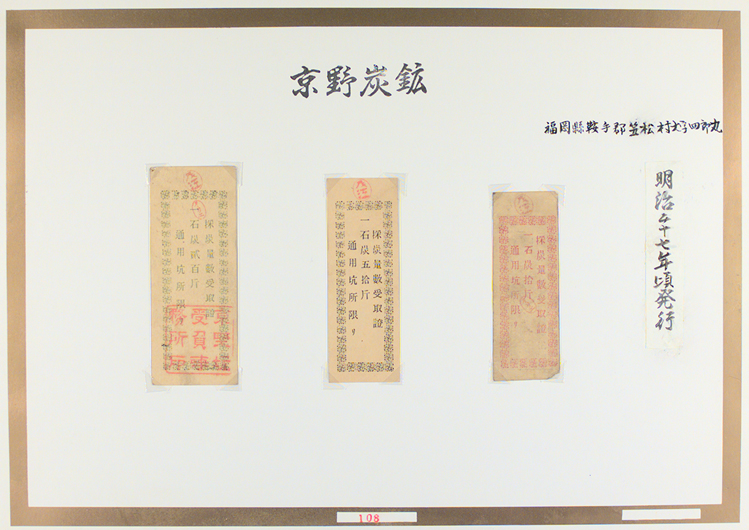 京野炭鉱
福岡縣鞍手郡笠松村大字四郎丸
明治二十七年頃発行
採炭量數受取證
一石炭五拾斤
通用坑所限リ
採炭量數受取證
一石炭拾斤
通用坑所限リ
採炭量數受取證
石炭貳百斤
通用坑所限リ
京野坑
受負事
務所
108